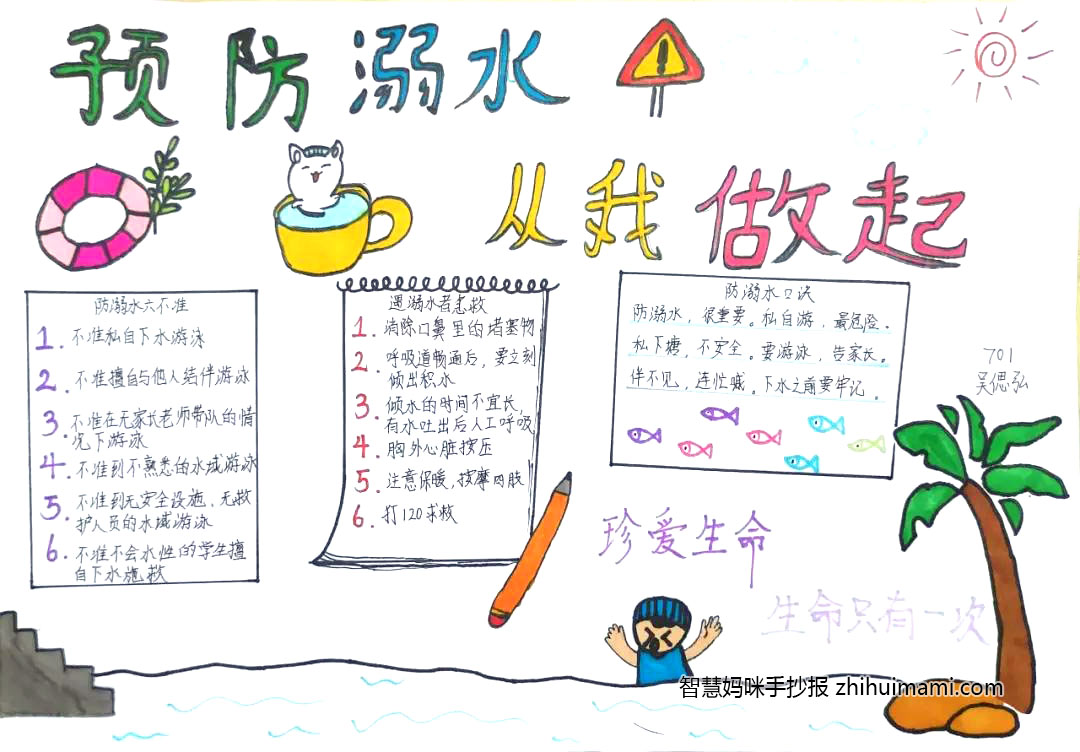 预防溺水
从我做起
防溺水六不准
1. 不准私自下水游泳
2. 不准擅自与他人结伴游泳
3. 不准在无家长老师带队的情
况下游泳
4. 不准到不熟悉的水域游泳
5. 不准到无安全设施、无救
护人员的水域游泳
6. 不准不会水性的学生擅
自下水施救
遇溺水者急救
1. 消除口鼻里的堵塞物
2. 呼吸道畅通后，要立刻
倾出积水
3. 倾水的时间不宜长，
有水吐出后人工呼吸
4. 胸外心脏按压
5. 注意保暖，按摩四肢
6. 打120求救
防溺水口诀
防溺水，很重要。私自游，最危险。
私下塘，不安全。要游泳，告家长。
伴不见，连忙喊。下水之前要牢记。
701
吴偲弘
珍爱生命
生命只有一次
智慧妈咪手抄报 zhihuimami.com